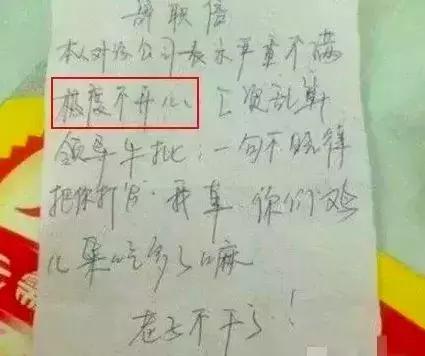 辞职信
本人对该公司表示严重不满
态度不开心、工资乱算
领导牛批：一句不晓得
把你打发。我草，你们鸡
儿果吃多了嘛
老子不干了！